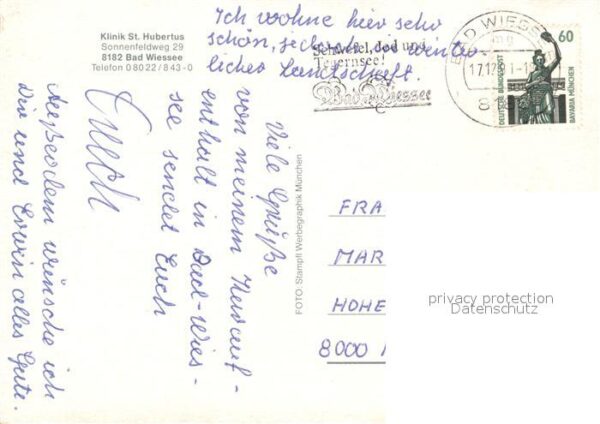 Klinik St. Hubertus
Sonnenfeldweg 29
8182 Bad Wiessee
Telefon 0 80 22 / 8 43 - 0
Viele Grüße
von meinem Kurauf-
enthalt in Bad-Wies-
see sendet Euch
Außerdem wünsche ich
Dir und Erwin alles Gute.
Ich wohne hier sehr
schön, in winter-
licher Landschaft.
Schwefel, Jod und
Tegernsee!
Bad Wiessee
BAD WIESS
17.12.9
60
DEUTSCHE BUNDESPOST
BAVARIA MÜNCHEN
FOTO: Stampfl Werbegraphik München
FRA
MAR
HOHE
8000
privacy protection
Datenschutz